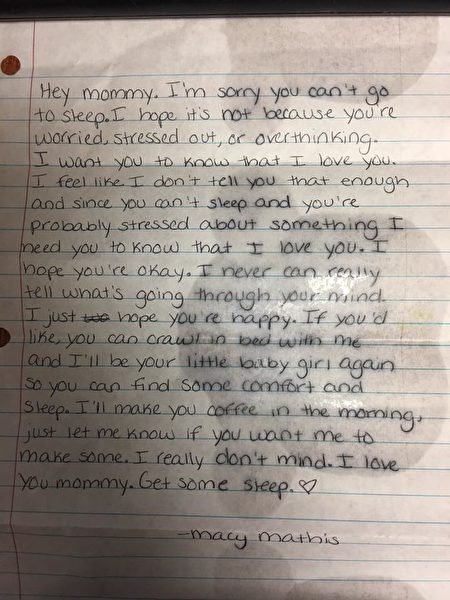 Hey mommy. I'm sorry you can't go
to sleep. I hope it's not because you're
worried, stressed out, or overthinking.
I want you to know that I love you.
I feel like I don't tell you that enough
and since you can't sleep and you're
probably stressed about something I
need you to know that I love you. I
hope you're okay. I never can really
tell what's going through your mind.
I just hope you're happy. If you'd
like, you can crawl in bed with me
and I'll be your little baby girl again
so you can find some comfort and
sleep. I'll make you coffee in the morning,
just let me know if you want me to
make some. I really don't mind. I love
you mommy. Get some sleep. ♡
-macy mathis